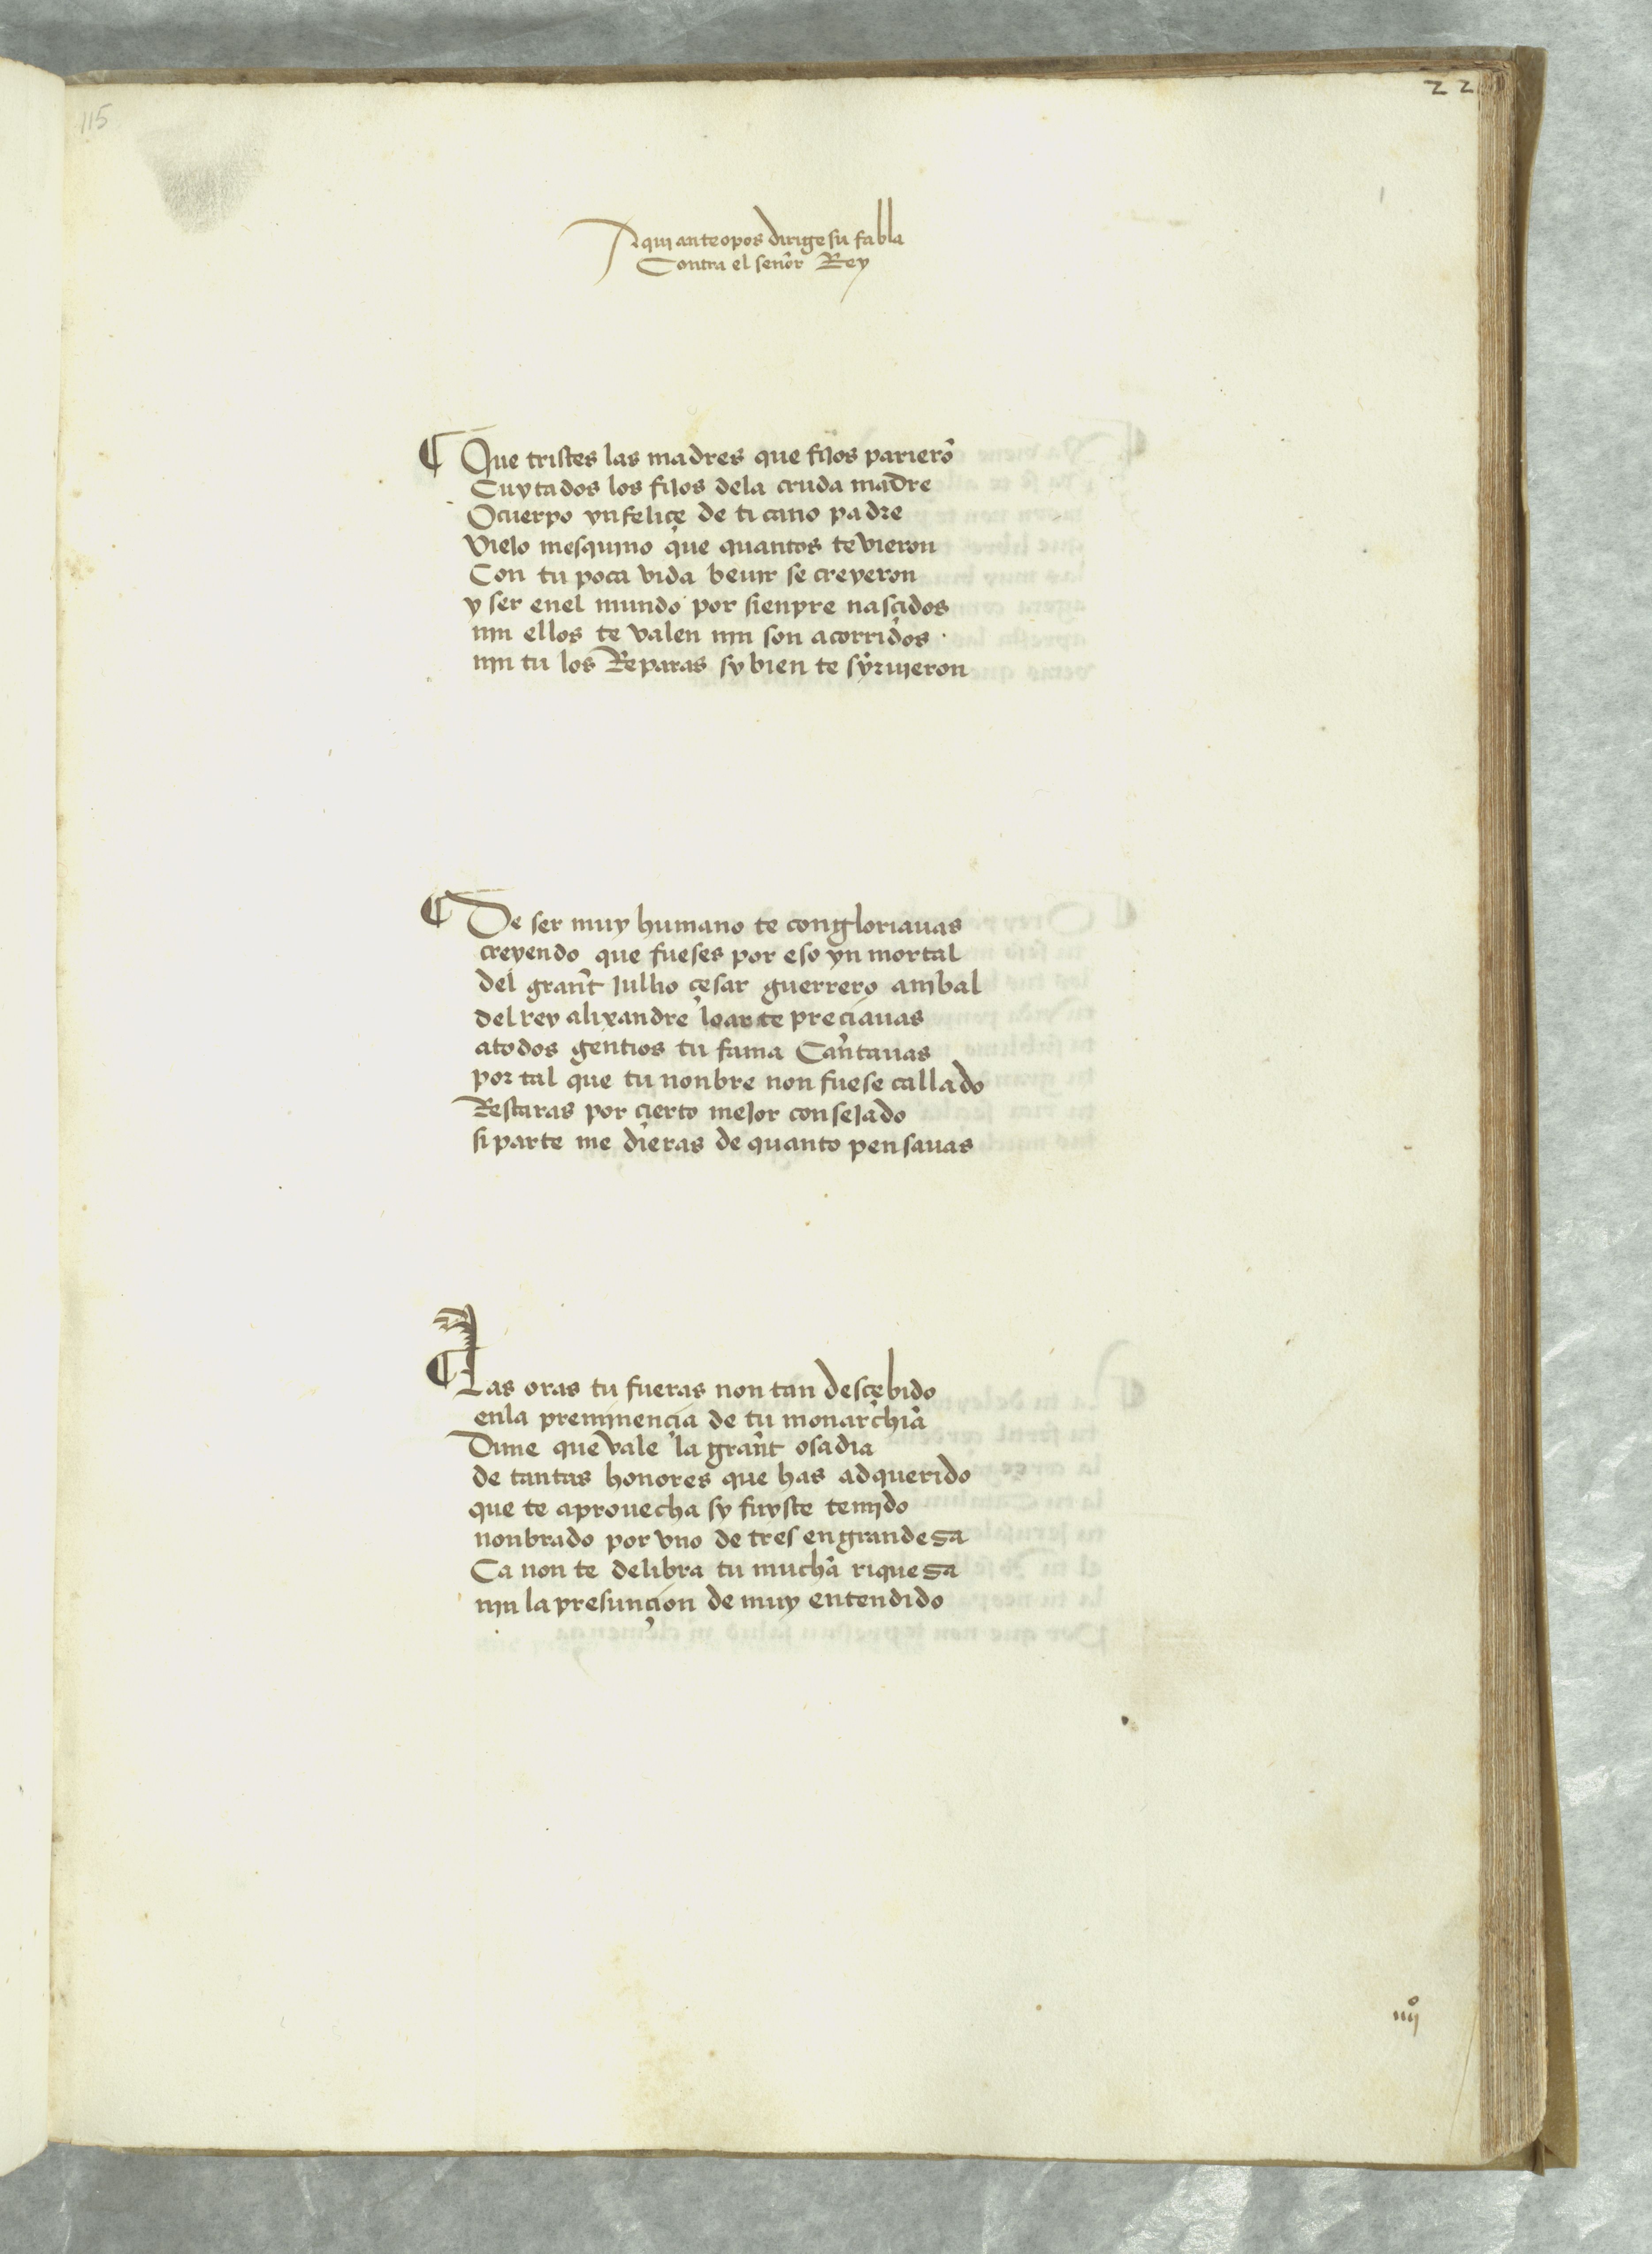 115
22
Aqui anteopos dirige su fabla
Contra el señor Rey
¶ Que tristes las madres que fijos parierõ
Cuytados los fijos dela cruda madre
Ocuerpo ynfeliçe de ti cano padre
viejo mesquino que quantos te vieron
Con tu poca vida beuir se creyeron
y ser enel mundo por sienpre nasçidos
nin ellos te valen nin son acorridos
nin tu los Reparas sy bien te syruieron
¶ De ser muy humano te congloriauas
creyendo que fueses por eso ynmortal
del grañt Julho çesar guerrero anibal
del rey alixandre loar te preciauas
atodos gentios tu fama Cantauas
por tal que tu nonbre non fuese callado
Restaras por çierto mejor consejado
si parte me dieras de quanto pensauas
¶ Las oras tu fueras non tan desçebido
enla preminençia de tu monarchia
Dime que vale la grañt osadia
de tantas honores que has adquerido
que te aprouecha sy fuyste temido
nonbrado por vno de tres en grandesa
Ca non te delibra tu mucha riquesa
nin la presunçion de muy entendido
iiijº